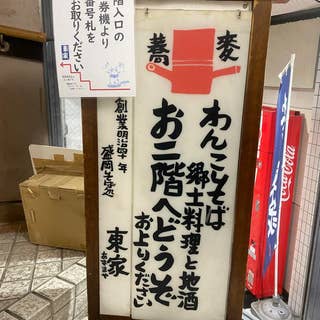 階入口の
券機より
番号札を
お取りください
蕎麦
わんこそば
郷土料理と地酒
お二階へどうぞ
お上りください
創業明治四十年
盛岡
東家
Coca-Cola